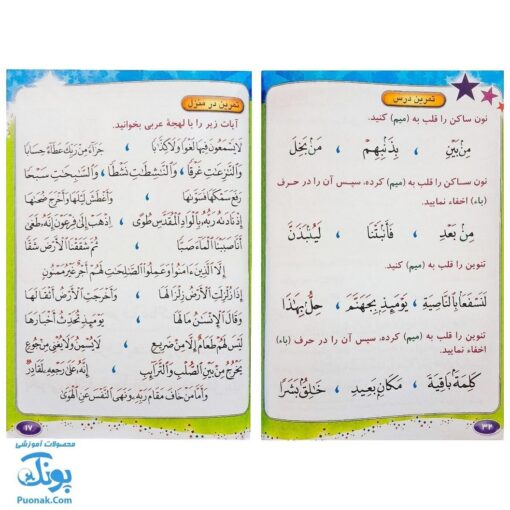 تمرین درس
نون ساکن را قلب به (میم) کنید.
مِنْ بَيْنِ ، بِذَنْبِهِمْ ، مَنْ بَخِلَ
نون ساکن را قلب به (میم) کرده، سپس آن را در حرف
(باء) اخفاء نمایید.
مِنْ بَعْدِ ، فَأَنْبَتْنَا ، لَيُنْبَذَنَّ
تنوین را قلب به (میم) کنید.
لَنَسْفَعًا بِالنَّاصِيَةِ ، يَوْمَئِذٍ بِجَهَنَّمَ ، حِلٌّ بِهَذَا
تنوین را قلب به (میم) کرده، سپس آن را در حرف (باء)
اخفاء نمایید.
كَلِمَةً بَاقِيَةً ، مَكَانٍ بَعِيدٍ ، خَالِقٌ بَشَرًا
۳۴
تمرین در منزل
آیات زیر را با لهجهٔ عربی بخوانید.
لَا يَسْمَعُونَ فِيهَا لَغْوًا وَلَا كِذَّابًا ، جَزَاءً مِنْ رَبِّكَ عَطَاءً حِسَابًا
وَالنَّازِعَاتِ غَرْقًا ، وَالنَّاشِطَاتِ نَشْطًا ، وَالسَّابِحَاتِ سَبْحًا
رَفَعَ سَمْكَهَا فَسَوَّاهَا ، وَأَغْطَشَ لَيْلَهَا وَأَخْرَجَ ضُحَاهَا
إِذْ نَادَاهُ رَبُّهُ بِالْوَادِ الْمُقَدَّسِ طُوًى ، اذْهَبْ إِلَى فِرْعَوْنَ إِنَّهُ طَغَى
أَنَّا صَبَبْنَا الْمَاءَ صَبًّا ، ثُمَّ شَقَقْنَا الْأَرْضَ شَقًّا
إِلَّا الَّذِينَ آمَنُوا وَعَمِلُوا الصَّالِحَاتِ لَهُمْ أَجْرٌ غَيْرُ مَمْنُونٍ
إِذَا زُلْزِلَتِ الْأَرْضُ زِلْزَالَهَا ، وَأَخْرَجَتِ الْأَرْضُ أَثْقَالَهَا
وَقَالَ الْإِنْسَانُ مَا لَهَا ، يَوْمَئِذٍ تُحَدِّثُ أَخْبَارَهَا
لَيْسَ لَهُمْ طَعَامٌ إِلَّا مِنْ ضَرِيعٍ ، لَا يُسْمِنُ وَلَا يُغْنِي مِنْ جُوعٍ
يَخْرُجُ مِنْ بَيْنِ الصُّلْبِ وَالتَّرَائِبِ ، إِنَّهُ عَلَى رَجْعِهِ لَقَادِرٌ
وَأَمَّا مَنْ خَافَ مَقَامَ رَبِّهِ وَنَهَى النَّفْسَ عَنِ الْهَوَى
۱۷
محصولات آموزشی
پونک
Puonak.Com